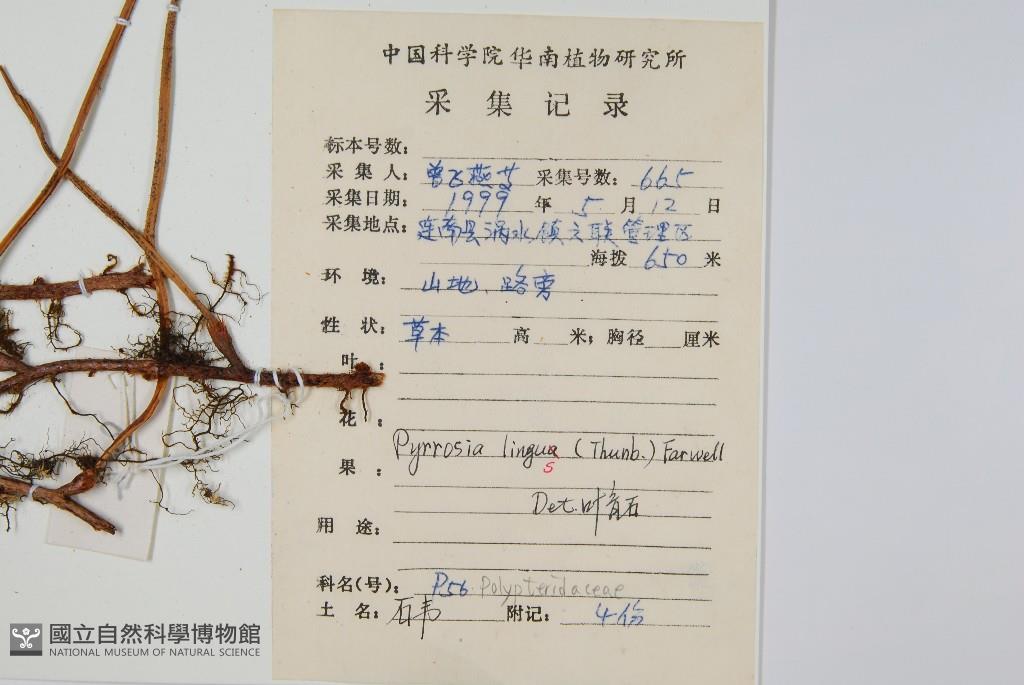 中国科学院华南植物研究所
采集记录
标本号数：
采集人：曾飞燕等 采集号数：665
采集日期：1999年5月12日
采集地点：连南县涡水镇 联管理区
海拨 650 米
环境：山地、路旁
性状：草本 高 米；胸径 厘米
叶：
花：
Pyrrosia lingua (Thunb.) Farwell
s
果：
Det. 叶育石
用途：
科名(号)：P56. Polypteridaceae
土名：石韦 附记：4份
國立自然科學博物館
NATIONAL MUSEUM OF NATURAL SCIENCE